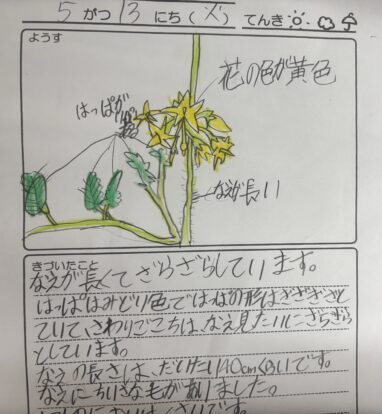 5 がつ 13 にち (火) てんき
ようす
花の色が黄色
はっぱが
なえが長い
きづいたこと
なえが長くてざらざらしています。
はっぱはみどり色ではっぱの形はぎざぎざと
していて、さわりごこちは、なえ見たいにざらざら
としています。
なえの長さは、だいたい40cmくらいです。
なえにちいさな毛がありました。